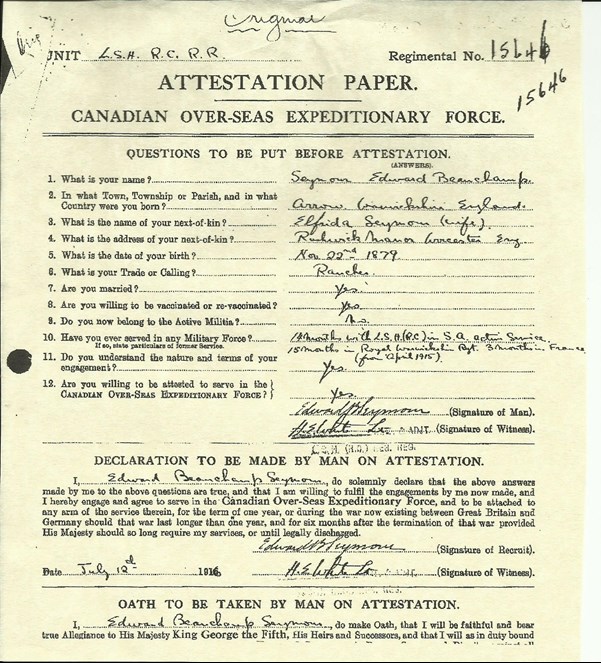 Original
UNIT L.S.H. R.C. R.R. Regimental No. 15646
15646
ATTESTATION PAPER.
CANADIAN OVER-SEAS EXPEDITIONARY FORCE.
QUESTIONS TO BE PUT BEFORE ATTESTATION.
(ANSWERS)
1. What is your name? Seymour Edward Beauchamp.
2. In what Town, Township or Parish, and in what
Country were you born? Arrow Warwickshire England.
3. What is the name of your next-of-kin? Elfrida Seymour (wife).
4. What is the address of your next-of-kin? Manor Worcester Eng
5. What is the date of your birth? Nov 22nd 1879
6. What is your Trade or Calling? Rancher.
7. Are you married? Yes
8. Are you willing to be vaccinated or re-vaccinated? Yes.
9. Do you now belong to the Active Militia? No.
10. Have you ever served in any Military Force? months with L.S.H.(R.C) in S.A. active Service.
If so, state particulars of former Service. 15 months in Royal Warwickshire Rgt. 3 months in France
(from April 1915)
11. Do you understand the nature and terms of your
engagement? Yes.
12. Are you willing to be attested to serve in the
CANADIAN OVER-SEAS EXPEDITIONARY FORCE? Yes
Edward B Seymour (Signature of Man).
H.E. White Lt. ADJT. (Signature of Witness).
L.S.H. (R.C.) RES. REG.
DECLARATION TO BE MADE BY MAN ON ATTESTATION.
I, Edward Beauchamp Seymour, do solemnly declare that the above answers
made by me to the above questions are true, and that I am willing to fulfil the engagements by me now made, and
I hereby engage and agree to serve in the Canadian Over-Seas Expeditionary Force, and to be attached to
any arm of the service therein, for the term of one year, or during the war now existing between Great Britain and
Germany should that war last longer than one year, and for six months after the termination of that war provided
His Majesty should so long require my services, or until legally discharged.
Edward B Seymour (Signature of Recruit).
Date July 12d 1916 H.E. White Lt. ADJT. (Signature of Witness).
OATH TO BE TAKEN BY MAN ON ATTESTATION.
I, Edward Beauchamp Seymour, do make Oath, that I will be faithful and bear
true Allegiance to His Majesty King George the Fifth, His Heirs and Successors, and that I will as in duty bound